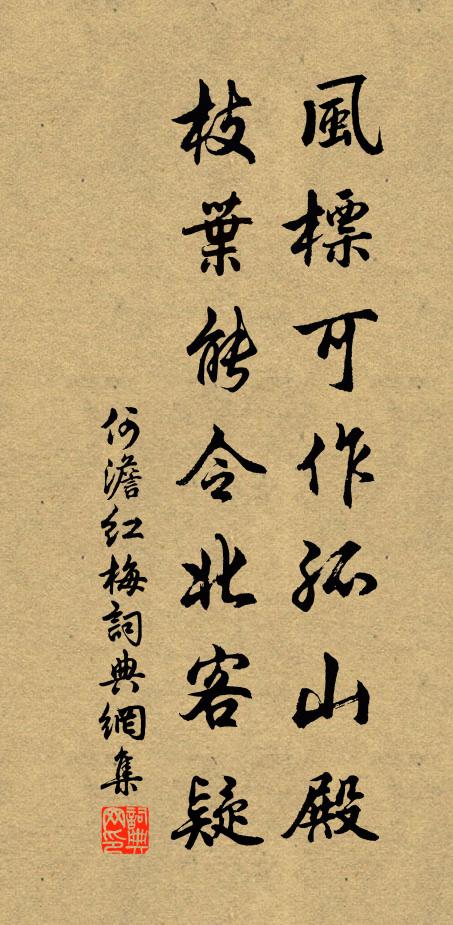 風標可作孤山殿
枝葉能令北客疑
何澹紅梅詞典網集
詞典網印